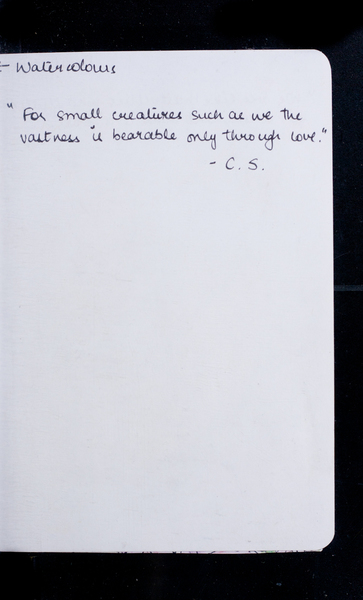 - Watercolours
" For small creatures such as we the
vastness is bearable only through love."
- C. S.